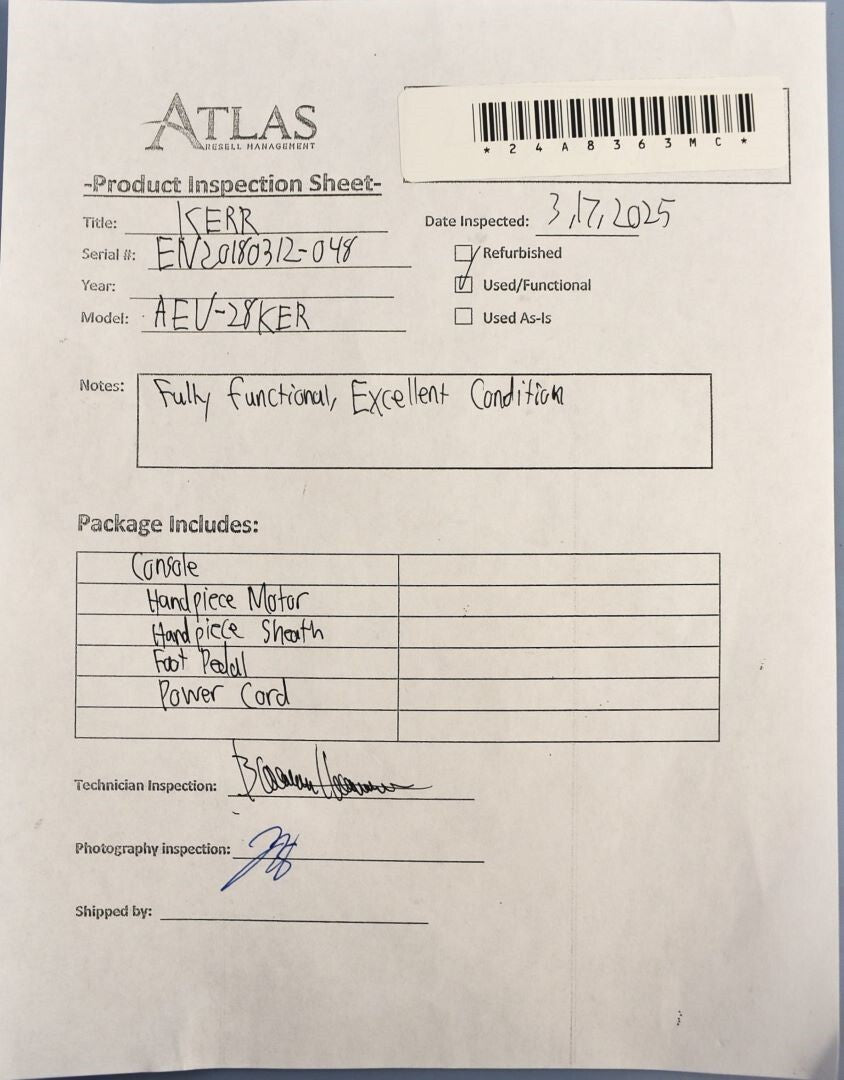 ATLAS
RESELL MANAGEMENT
*24A8363MC*
-Product Inspection Sheet-
Title: KERR
Date Inspected: 3,17,2025
Serial #: EN20180312-048
Refurbished
Year:
Used/Functional
Model: AEU-28KER
Used As-Is
Notes: Fully functional, Excellent Condition
Package Includes:
Console
Handpiece Motor
Handpiece Sheath
Foot Pedal
Power Cord
Technician Inspection:
Photography inspection:
Shipped by: